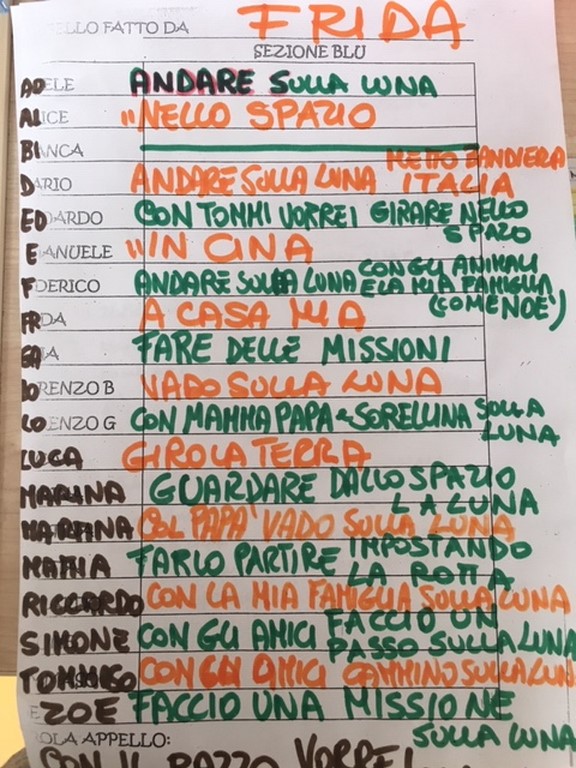 ELLO FATTO DA FRIDA
SEZIONE BLU
ADELE ANDARE SULLA LUNA
ALICE "NELLO SPAZIO
BIANCA
DARIO ANDARE SULLA LUNA METTO BANDIERA ITALIA
EDOARDO CON TOMMI VORREI GIRARE NELLO SPAZO
EMANUELE "IN CINA
FEDERICO ANDARE SULLA LUNA CON GLI ANIMALI E LA MIA FAMIGLIA (COMENOE')
FRIDA A CASA MIA
GAIA FARE DELLE MISSIONI
LORENZO B VADO SULLA LUNA
LORENZO G CON MAMMA PAPA e SORELLINA SULLA LUNA
LUCA GIRO LA TERRA
MARINA GUARDARE DALLO SPAZIO LA LUNA
MARTINA COL PAPA' VADO SULLA LUNA
MATTIA FARLO PARTIRE IMPOSTANDO LA ROTTA
RICCARDO CON LA MIA FAMIGLIA SULLA LUNA
SIMONE CON GLI AMICI FACCIO UN PASSO SULLA LUNA
TOMMASO CON GLI AMICI CAMMINO SULLA LUN
ZOE FACCIO UNA MISSIONE SULLA LUNA
OLA APPELLO:
CON IL RAZZO VORREI